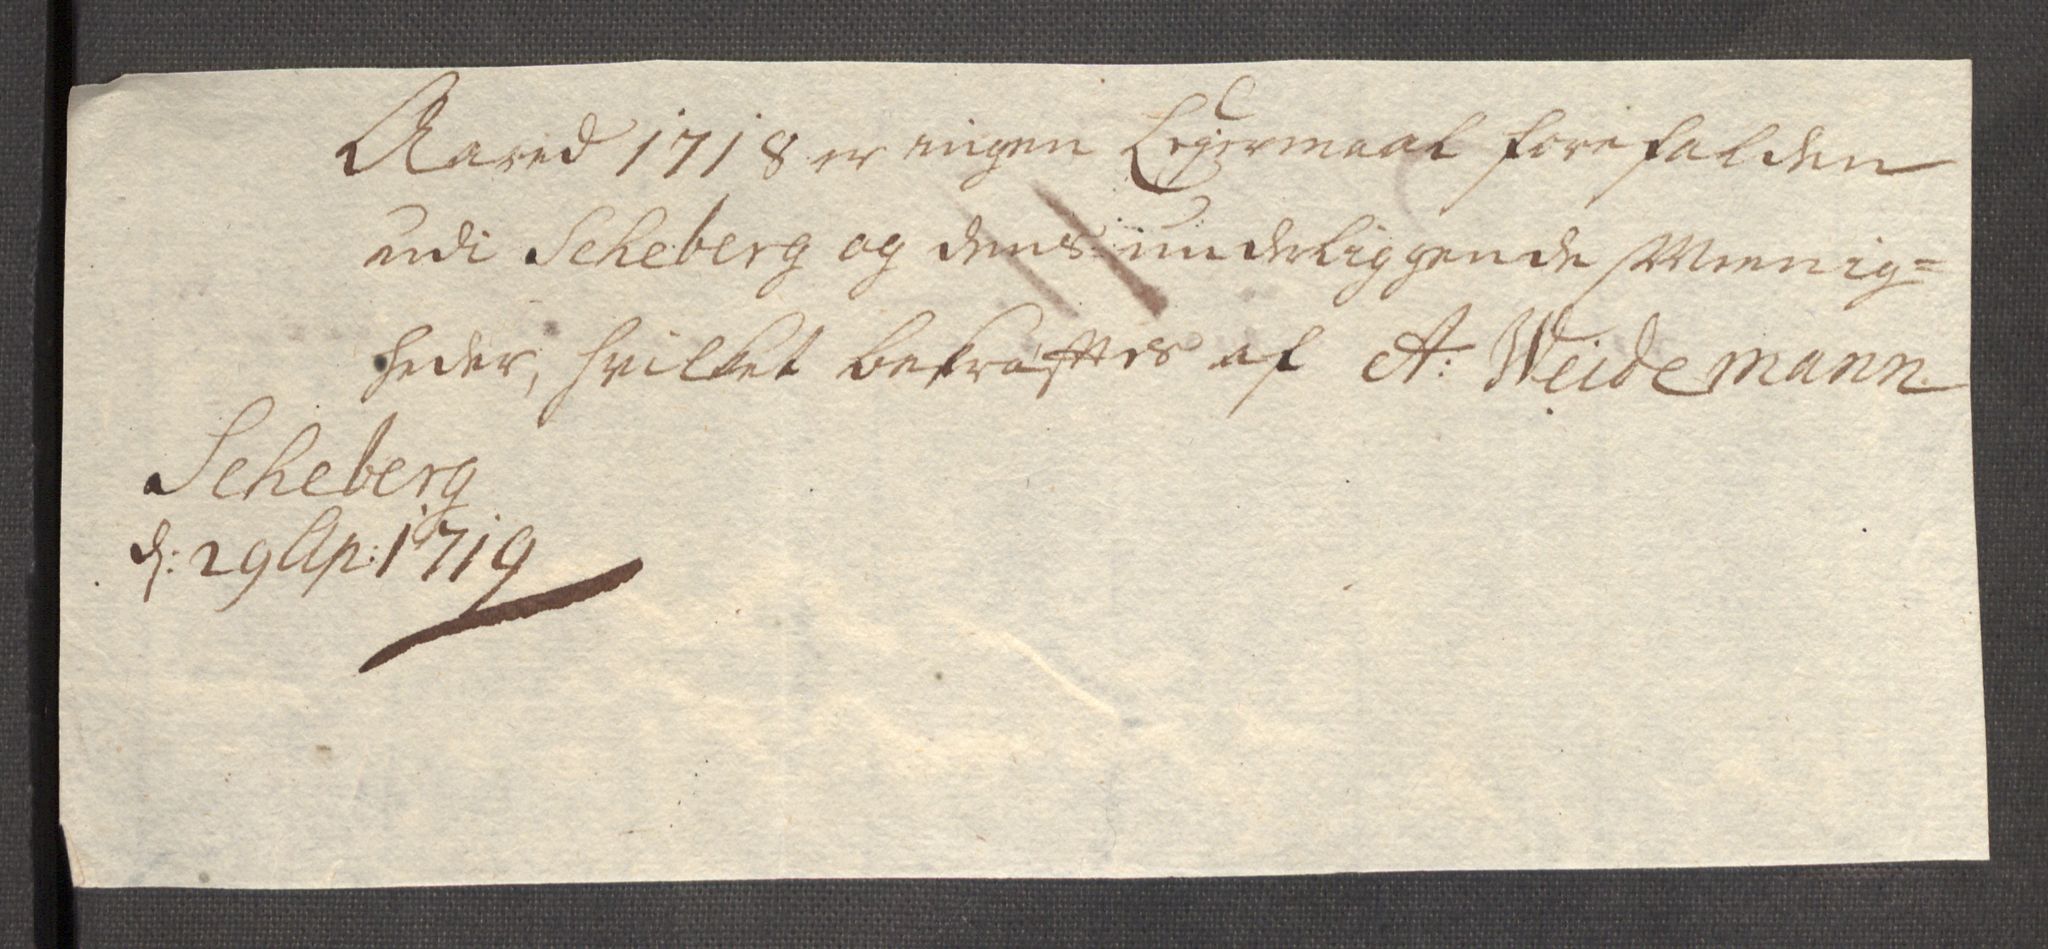 Aared 1718 er ingen Lejermaal forefalden
udi Scheberg og dens underliggende Meenig=
heder, hvilket bekræfftes af A: Weidemann.
Scheberg
d: 29 Ap: 1719